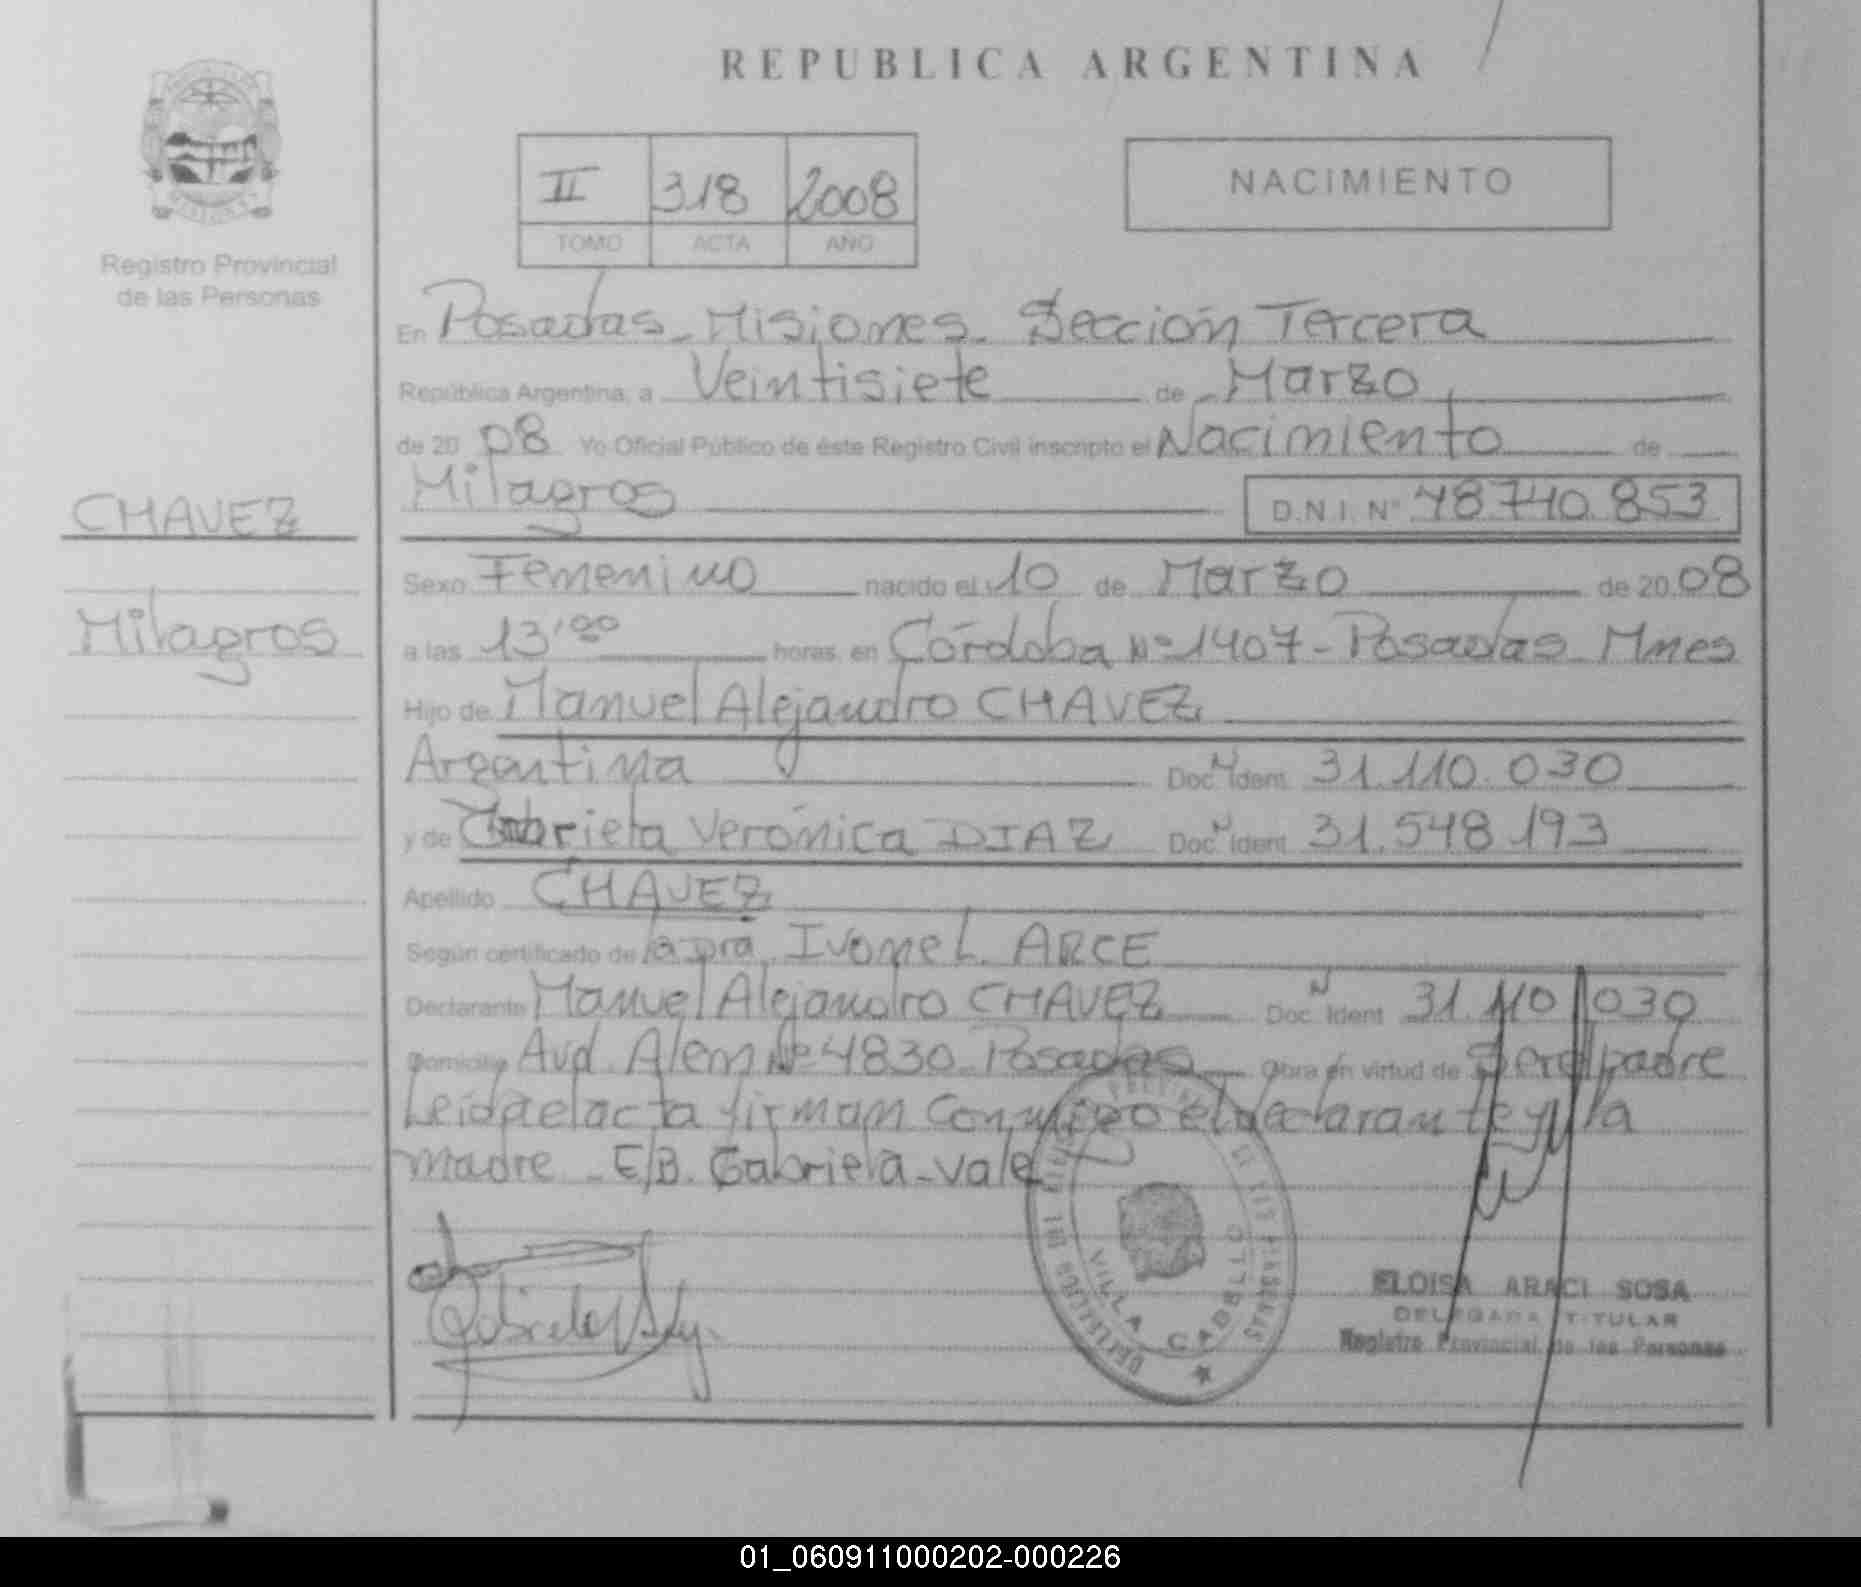 REPUBLICA ARGENTINA
II 318 2008
TOMO ACTA AÑO
NACIMIENTO
Registro Provincial
de las Personas
CHAVEZ
Milagros
En Posadas - Misiones - Sección Tercera
República Argentina, a Veintisiete de Marzo
de 20 08 Yo Oficial Público de éste Registro Civil inscripto el Nacimiento de
Milagros D.N.I. Nº 48.740.853
Sexo Femenino nacido el 10 de Marzo de 20 08
a las 13'00 horas, en Córdoba Nº 1407 - Posadas - Mnes
Hijo de Manuel Alejandro CHAVEZ
Argentina Doc. Ident. 31.110.030
y de Gabriela Verónica DIAZ Doc. Ident. 31.548.193
Apellido CHAVEZ
Según certificado de la Dra. Ivone L. ARCE
Declarante Manuel Alejandro CHAVEZ Doc. Ident. 31.110.030
Domicilio Avd. Alem Nº 4830 - Posadas Obra en virtud de Ser el padre
Leída el acta firman conmigo el declarante y la
madre - E/B. Gabriela - vale
VILLA CABELLO
ELOISA ARACI SOSA
DELEGADA TITULAR
Registro Provincial de las Personas
01_060911000202-000226